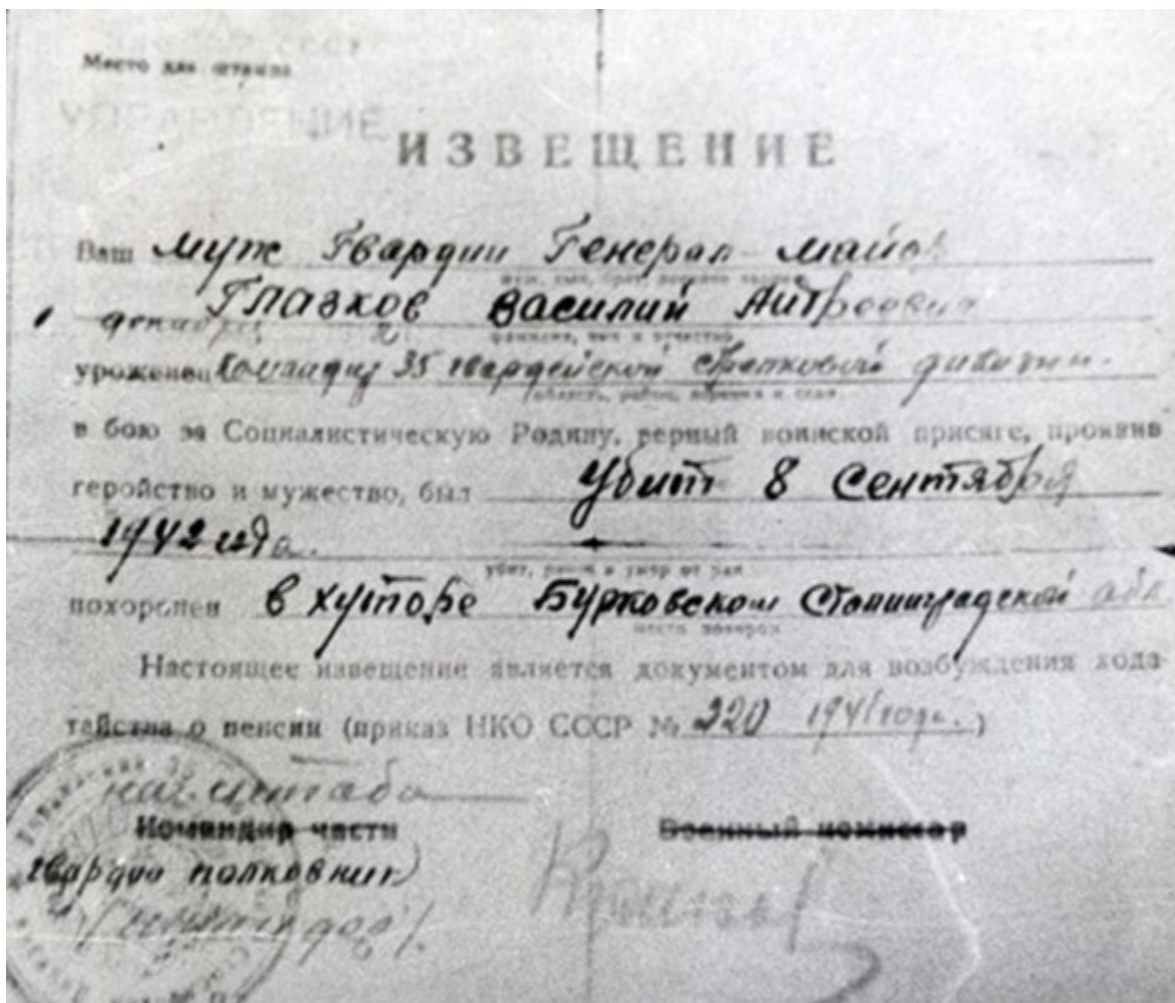 Место для штампа
УПРАВЛЕНИЕ
ИЗВЕЩЕНИЕ
Ваш муж Гвардии Генерал-майор
муж, сын, брат,
Глазков Василий Андреевич
фамилия, имя и отчество
уроженец Командир 35 гвардейской стрелковой дивизии.
область, район, деревня и село
в бою за Социалистическую Родину, верный воинской присяге, проявив
геройство и мужество, был убит 8 Сентября
1942 года.
убит, ранен и умер от ран
похоронен в хуторе Бурковском Сталинградской обл
место похорон
Настоящее извещение является документом для возбуждения хода-
тайства о пенсии (приказ НКО СССР № 220 1941 года.)
нач. штаба
Командир части Военный комиссар
гвардии полковник